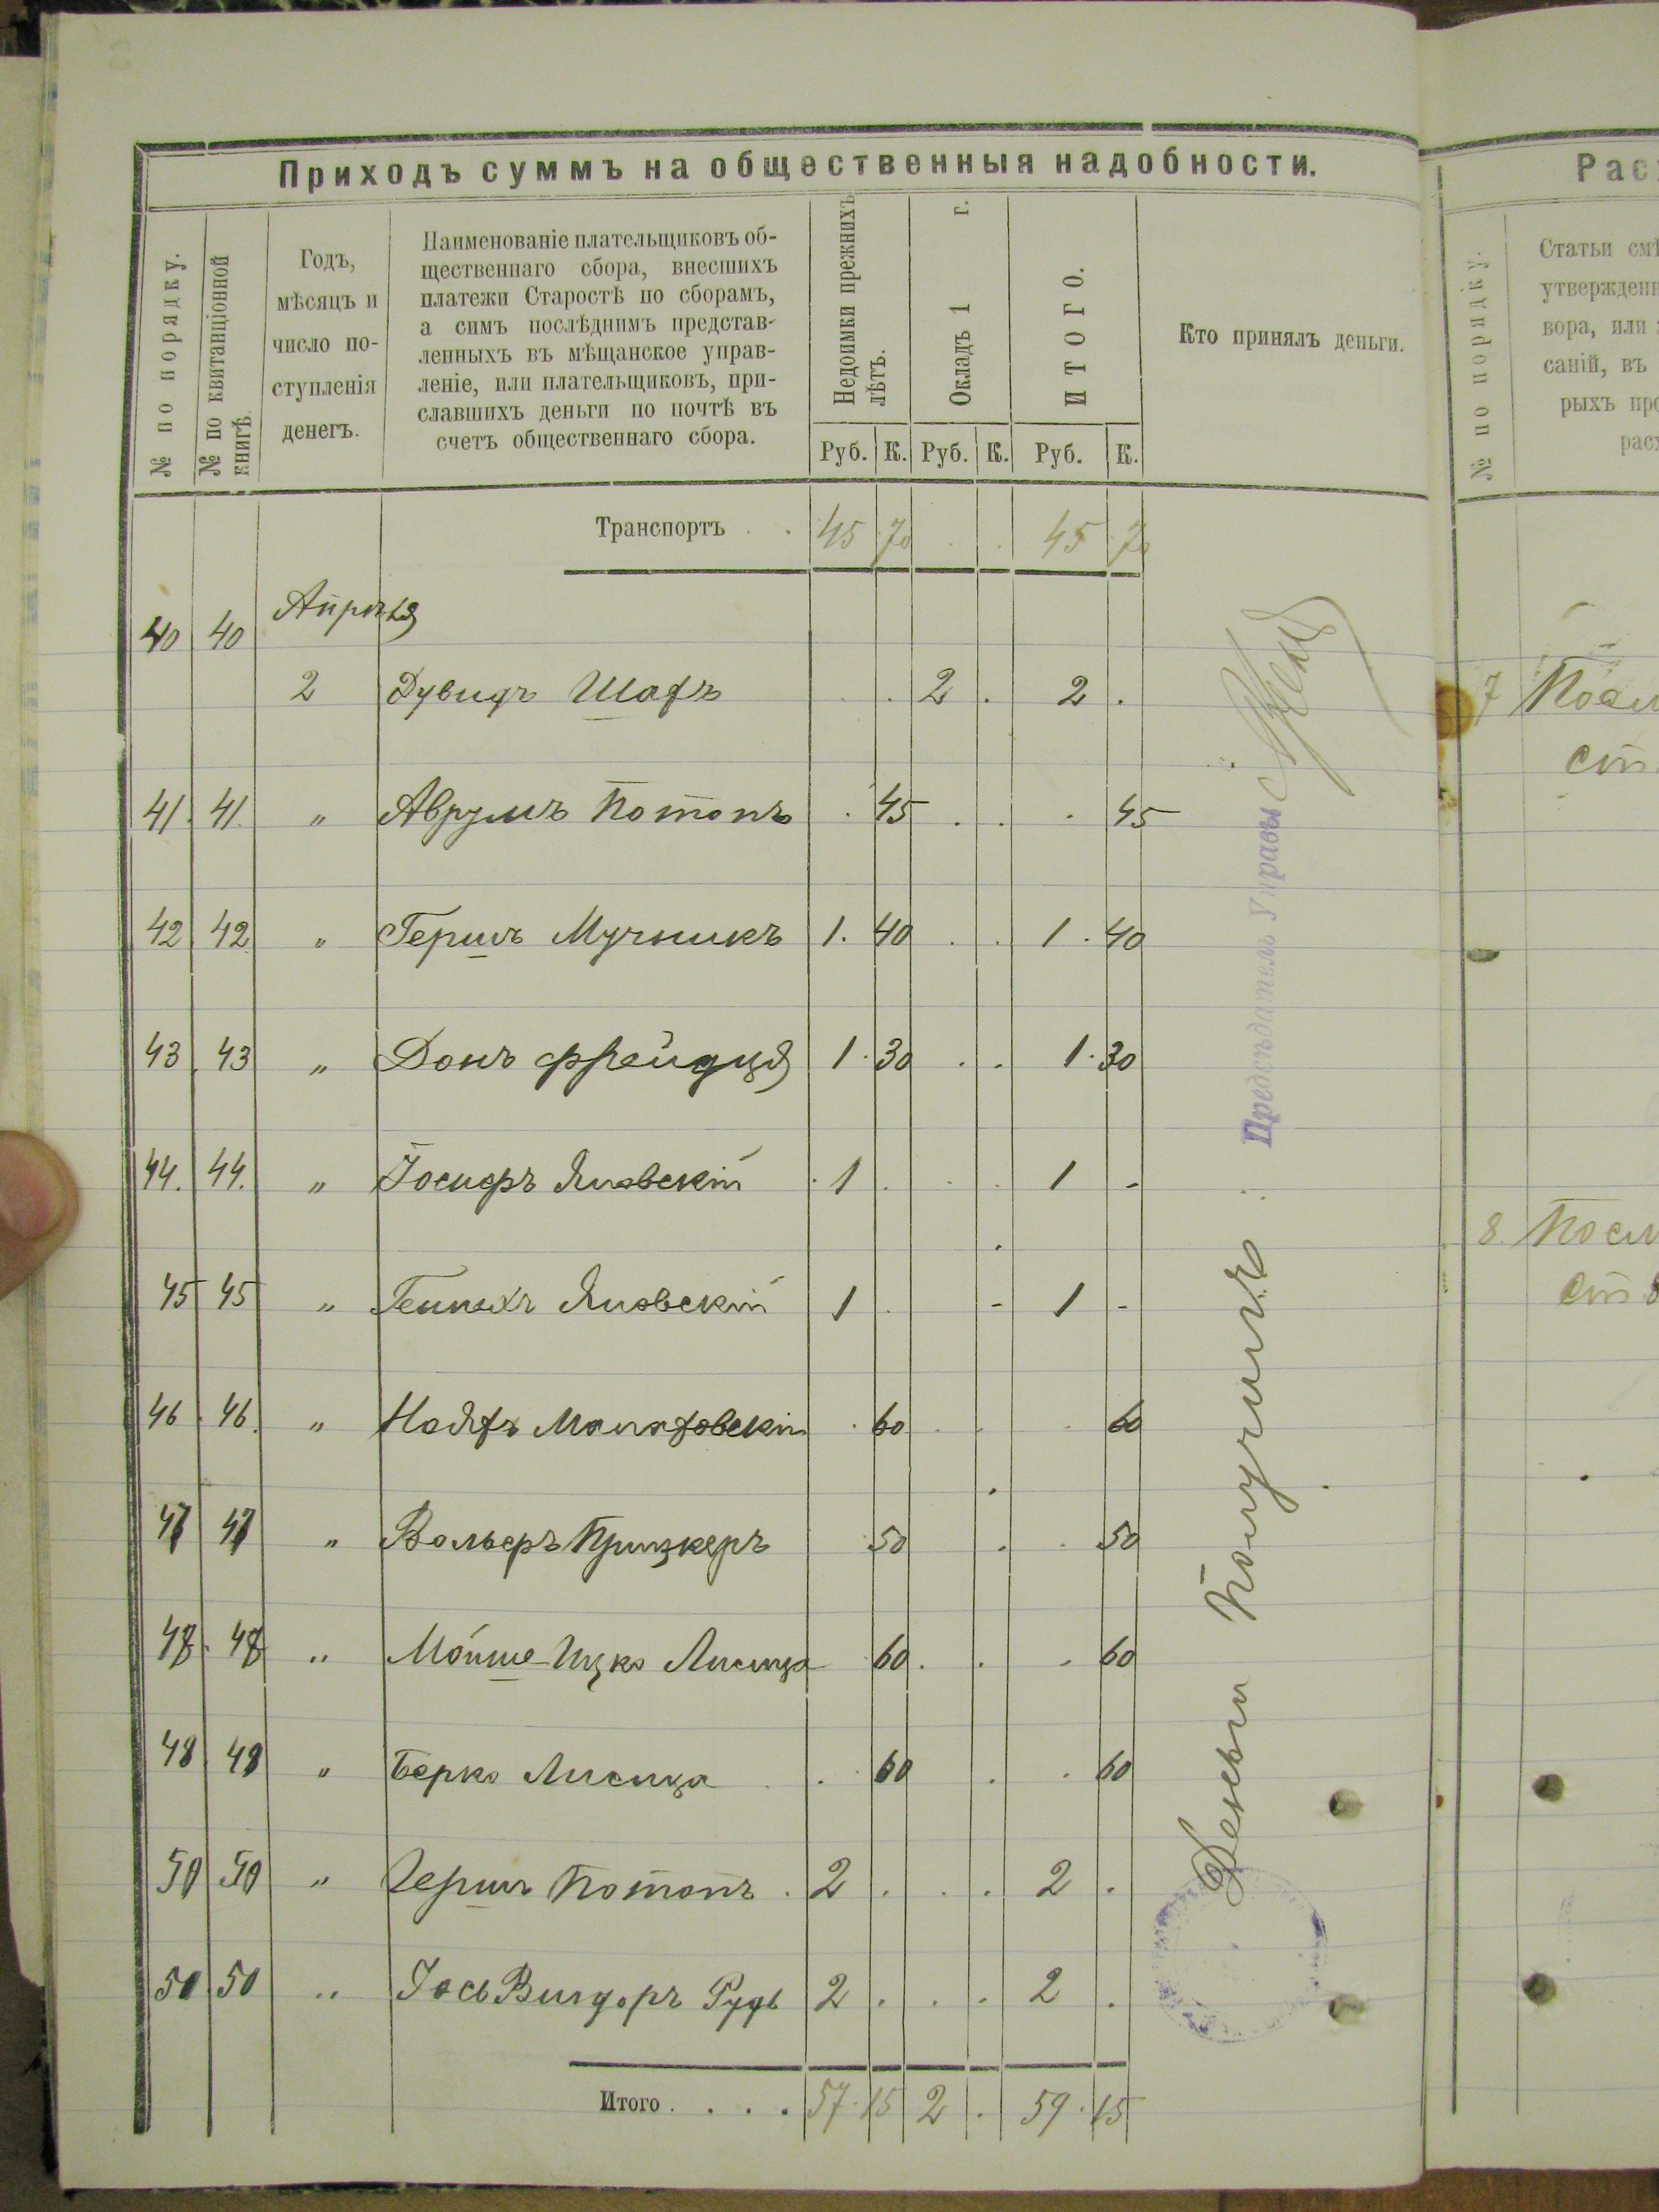 Приходъ суммъ на общественныя надобности.
№ по порядку.
№ по квитанціонной книгѣ.
Годъ,
мѣсяцъ и
число по-
ступленія
денегъ.
Наименованіе плательщиковъ об-
щественнаго сбора, внесшихъ
платежи Старостѣ по сборамъ,
а симъ послѣднимъ представ-
ленныхъ въ мѣщанское управ-
леніе, или плательщиковъ, при-
славшихъ деньги по почтѣ въ
счетъ общественнаго сбора.
Недоимки прежнихъ лѣтъ.
Окладъ 1 г.
ИТОГО.
Кто принялъ деньги.
Руб. К. Руб. К. Руб. К.
Транспортъ . . 45 70 45 70
40 40 Апрѣля
2 Дувидъ Шафъ 2 2
41. 41. " Аврумъ Потопъ 45 45
42 42 " Гершъ Мучникъ 1. 40 1. 40
43 43 " Донъ 1. 30 1. 30
44. 44. " Іосифъ Яновскій 1 1 -
45 45 " Яновскій 1 - 1 -
46 46. " 60 60
47 47 " Вольфъ Прицкеръ 50 50
48. 48 " Мойше-Ицко Лисица 60 60
48 48 " Берко Лисица 60 60
50 50 " Гершъ Потопъ 2 2
50 50 " Іось Видоръ Рудь 2 2
Итого . . . . 57. 15 2 59. 15
Деньги получилъ:
Предсѣдатель Управы
Рас
№ по порядку.
Статьи смѣ
утвержденн
вора, или
саній, въ
рыхъ про
расх
7
8.